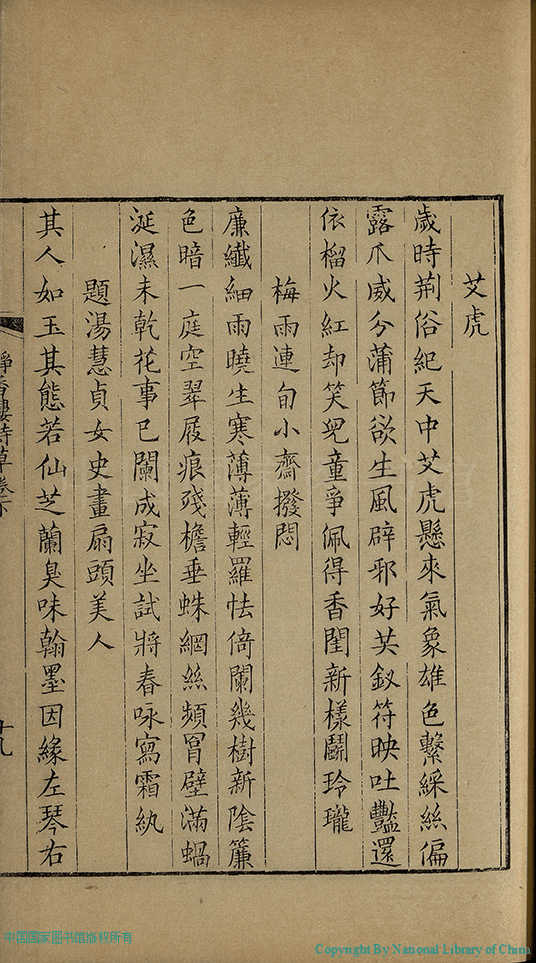 艾虎
歲時荆俗紀天中艾虎懸來氣象雄色繫綵絲偏
露爪威分蒲節欲生風辟邪好共釵符映吐豔還
依榴火紅却笑兒童爭佩得香閨新樣鬭玲瓏
梅雨連旬小齋撥悶
廉纖細雨曉生寒薄薄輕羅怯倚闌幾樹新陰簾
色暗一庭空翠屐痕殘檐垂蛛網絲頻冒壁滿蝸
涎濕未乾花事已闌成寂坐試將春咏寫霜紈
題湯慧貞女史畫扇頭美人
其人如玉其態若仙芝蘭臭味翰墨因緣左琴右
靜香樓詩草卷下
十九
中国国家图书馆版权所有
Copyright By National Library of China